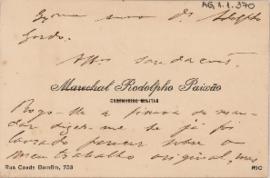 AG.1.1.370
Exmo Snro Dr Adolpho
Gordo.
Affs saudações
Marechal Rodolpho Paixão
ENGENHEIRO MILITAR
Rogo-lhe a fineza de man-
dar dizer-me se já foi
lavrado parecer sobre o
meu trabalho original, mas
Rua Conde Bomfim, 753
RIO